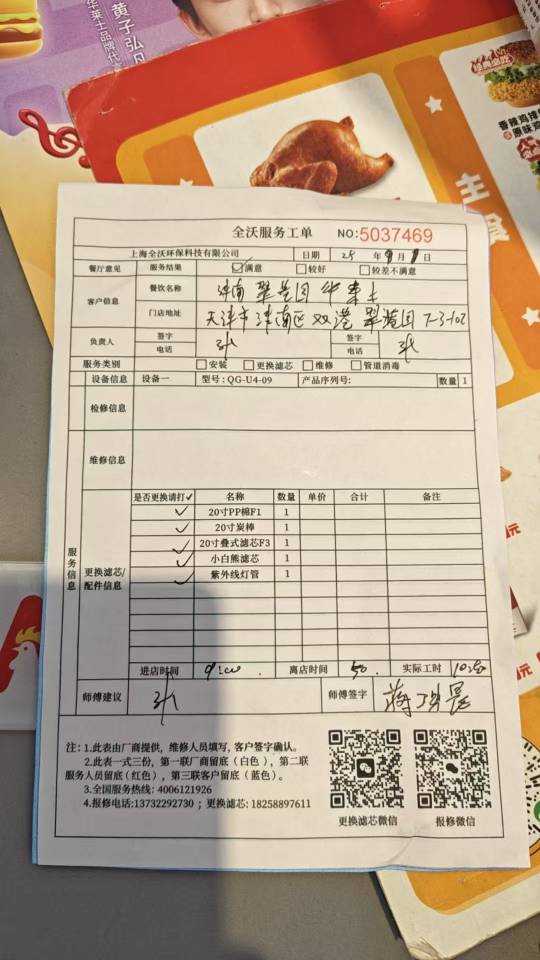 黄子弘凡
华莱士品牌代言
经典必吃
香辣鸡排
原味鸡
主食
全沃服务工单 NO:5037469
上海全沃环保科技有限公司 日期 25 年 9 月 1 日
餐厅意见 服务结果 ☑满意 □较好 □较差不满意
客户信息 餐饮名称 津南 翠港园 华莱士
门店地址 天津市津南区双港 翠港园 7-3-102
负责人 签字 电话 签字 电话
服务类别 □安装 □更换滤芯 □维修 □管道消毒
设备信息 设备一 型号: QG-U4-09 产品序列号: 数量 1
服务信息
检修信息
维修信息
更换滤芯/配件信息
是否更换请打✓ 名称 数量 单价 合计 备注
✓ 20寸PP棉F1 1
✓ 20寸炭棒 1
✓ 20寸叠式滤芯F3 1
✓ 小白熊滤芯 1
✓ 紫外线灯管 1
进店时间 9:00 离店时间 50 实际工时
师傅建议 师傅签字 蒋
注: 1.此表由厂商提供, 维修人员填写, 客户签字确认。
2.此表一式三份, 第一联厂商留底(白色), 第二联
服务人员留底(红色), 第三联客户留底(蓝色)。
3.全国服务热线: 4006121926
4.报修电话:13732292730 ; 更换滤芯: 18258897611
更换滤芯微信 报修微信